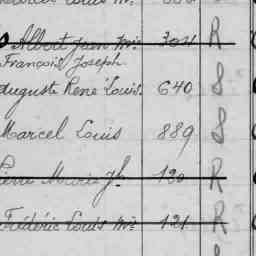 Albert Jean Mie 304 R
François Joseph
Auguste René Louis. 640 S
Marcel Louis 889 S
Pierre Marie Jh 120 R
Frédéric Louis Mie 121 R